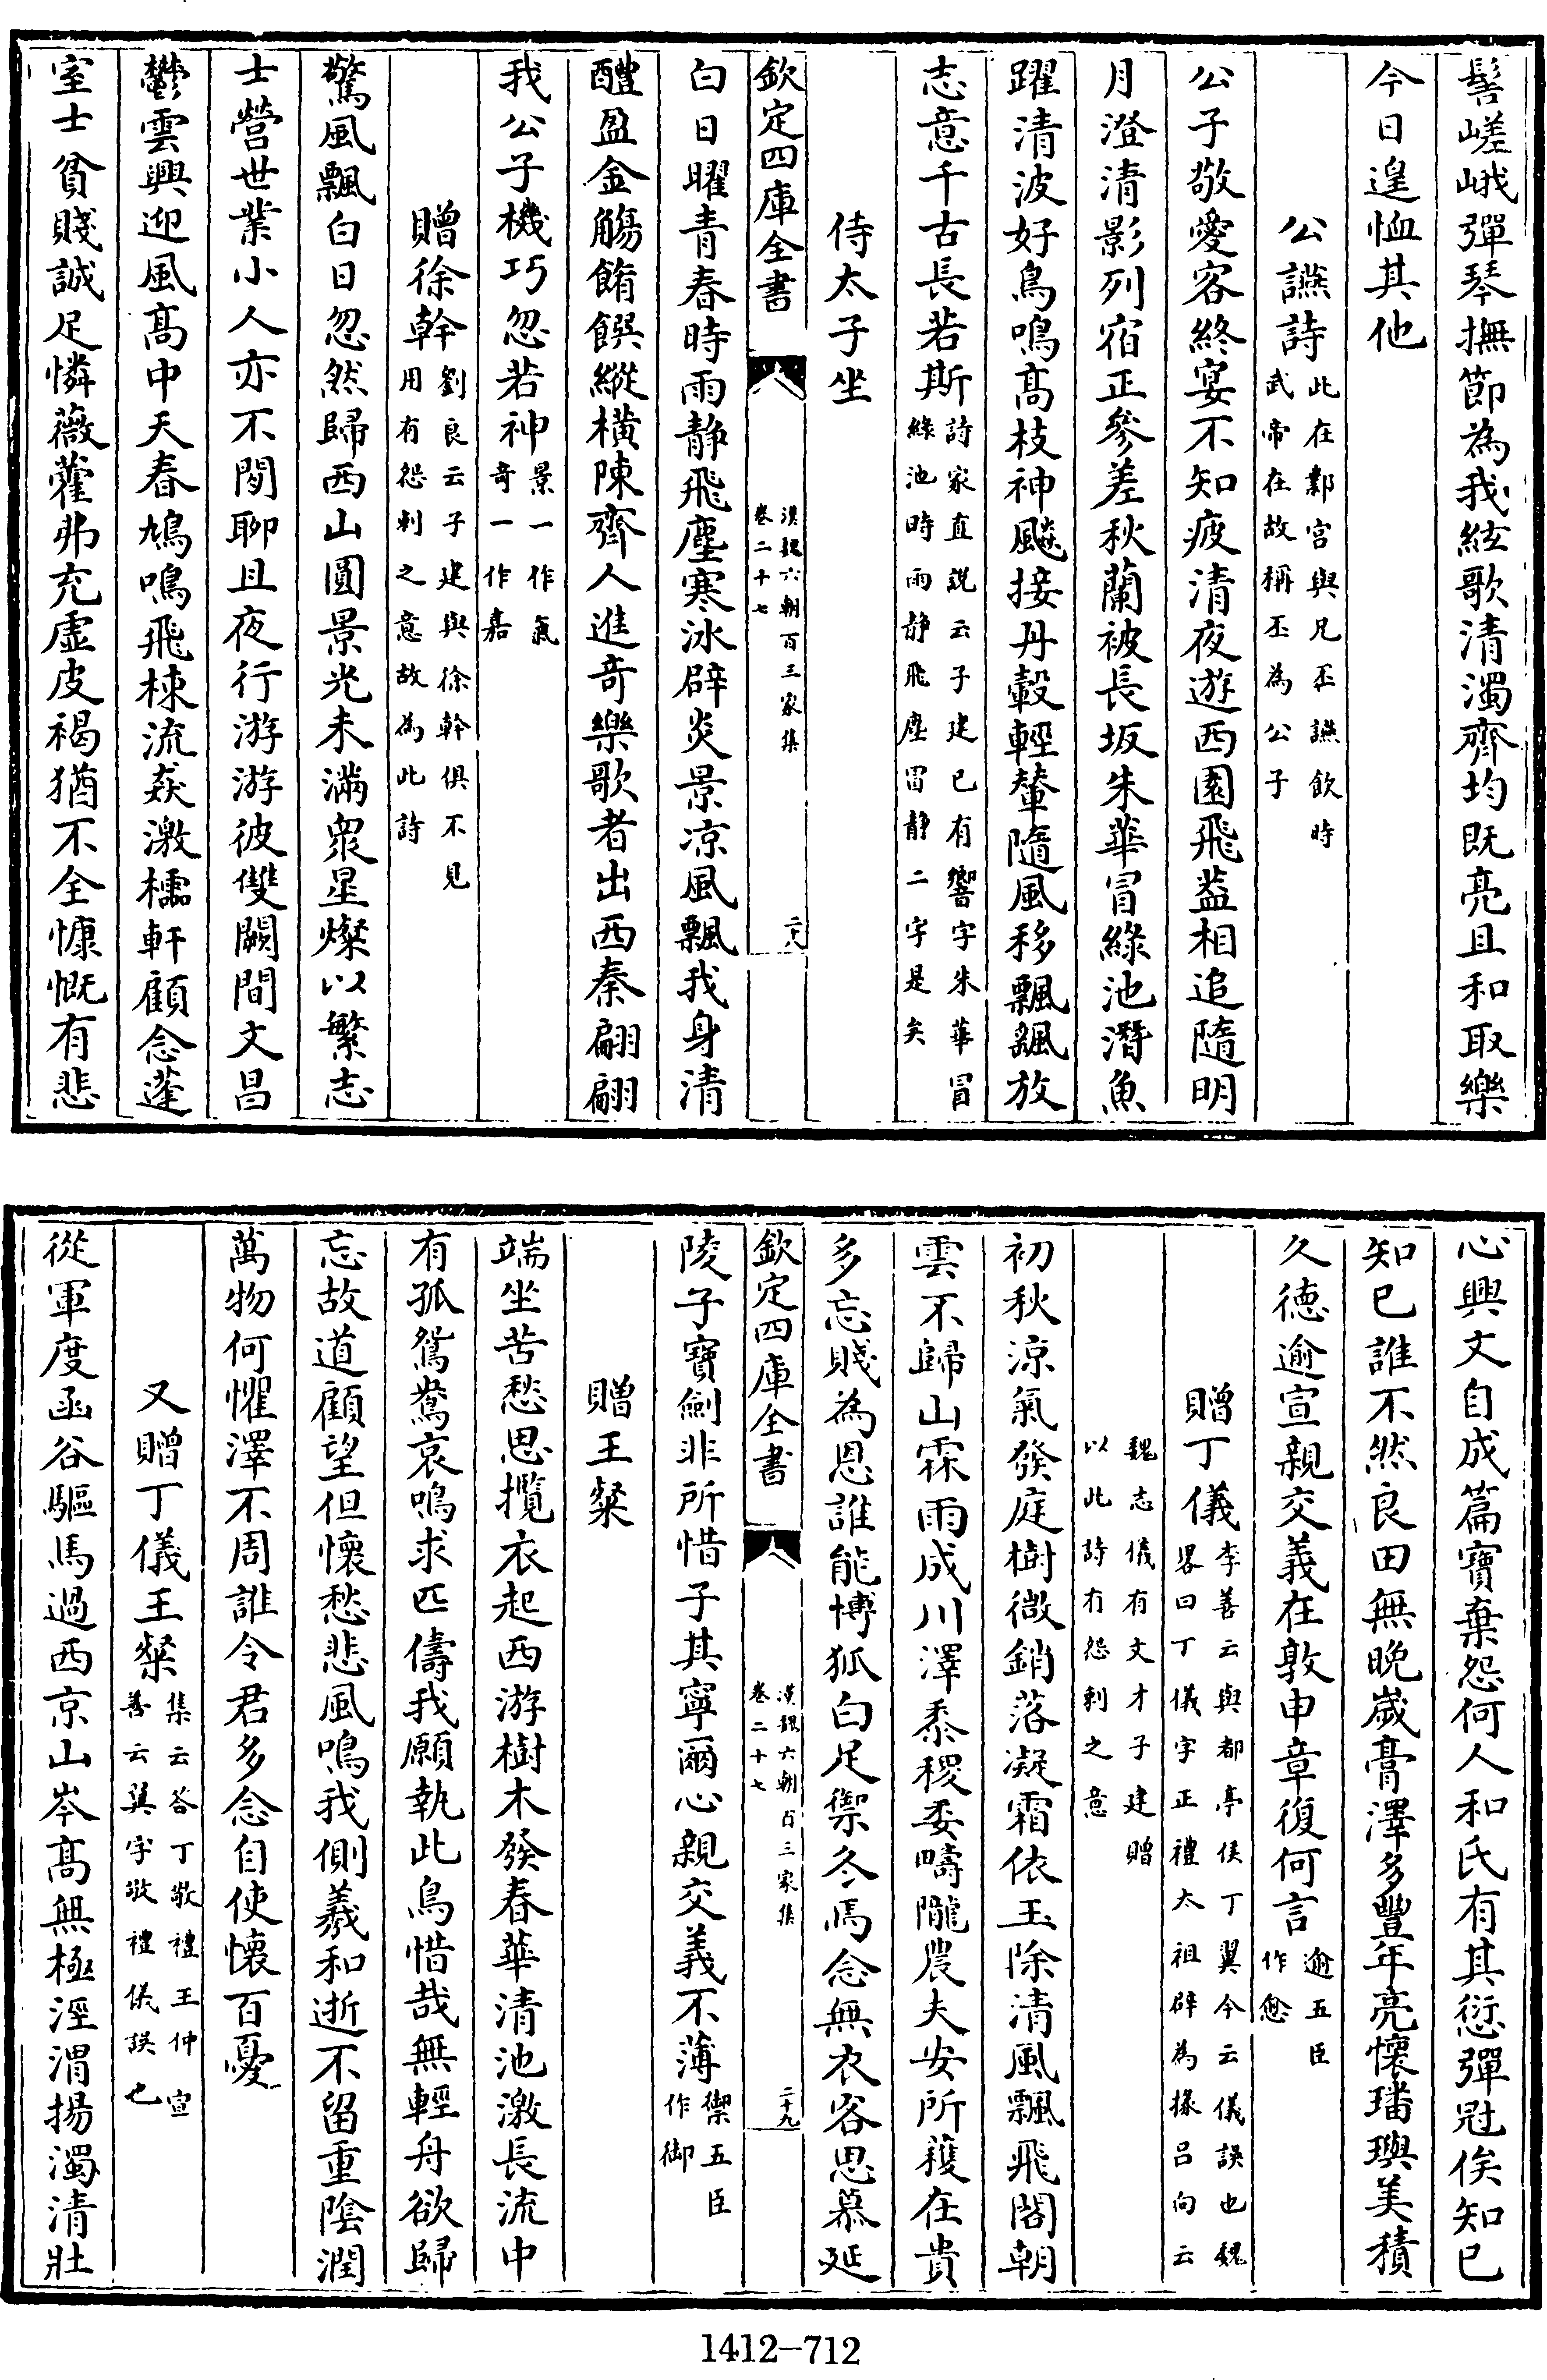 髻嵯峨彈琴撫節為我絃歌清濁齊均既亮且和取樂
今日遑恤其他
公讌詩此在鄴宮與兄丕讌飲時武帝在故稱丕為公子
公子敬愛客終宴不知疲清夜遊西園飛葢相追隨明
月澄清影列宿正參差秋蘭被長坂朱華冒綠池潛魚
躍清波好鳥鳴髙枝神飈接丹轂輕輦隨風移飄颻放
志意千古長若斯詩家直説云子建已有響字朱華冒綠池時雨静飛塵冒静二字是矣
侍太子坐
欽定四庫全書
漢魏六朝百三家集
卷二十七
二十八
白日曜青春時雨静飛塵寒冰辟炎景凉風飄我身清
醴盈金觴餚饌縱横陳齊人進奇樂歌者出西秦翩翩
我公子機巧忽若神景一作氣奇一作嘉
贈徐幹劉良云子建與徐幹俱不見用有怨刺之意故為此詩
驚風飄白日忽然歸西山圓景光未滿衆星燦以繁志
士營世業小人亦不閒聊且夜行游游彼雙闕間文昌
鬱雲興迎風髙中天春鳩鳴飛棟流猋激櫺軒顧念蓬
室士貧賤誠足憐薇藿弗充虚皮褐猶不全慷慨有悲
心興文自成篇寶棄怨何人和氏有其愆彈冠俟知已
知已誰不然良田無晚嵗膏澤多豐年亮懷璠璵美積
久德逾宣親交義在敦申章復何言逾五臣作愈
贈丁儀李善云與都亭侯丁翼今云儀誤也魏畧曰丁儀字正禮太祖辟為掾吕向云
魏志儀有文才子建贈以此詩有怨刺之意
初秋凉氣發庭樹微銷落凝霜依玉除清風飄飛閣朝
雲不歸山霖雨成川澤黍稷委疇隴農夫安所穫在貴
多忘賤為恩誰能博狐白足禦冬焉念無衣客思慕延
欽定四庫全書
漢魏六朝百三家集
卷二十七
二十九
陵子寶劍非所惜子其寧爾心親交義不薄禦五臣作御
贈王粲
端坐苦愁思攬衣起西游樹木發春華清池激長流中
有孤鴛鴦哀鳴求匹儔我願執此鳥惜哉無輕舟欲歸
忘故道顧望但懷愁悲風鳴我側羲和逝不留重陰潤
萬物何懼澤不周誰令君多念自使懷百憂
又贈丁儀王粲集云答丁敬禮王仲宣善云翼字敬禮儀誤也
從軍度函谷驅馬過西京山岑髙無極涇渭揚濁清壯
1412-712